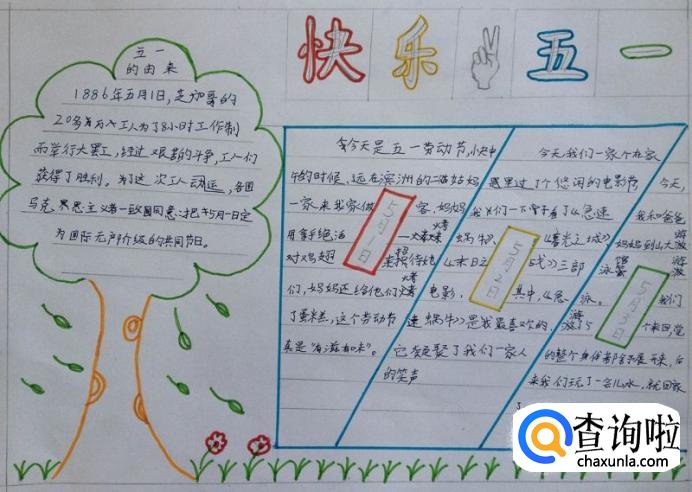 快乐 五一
五一
的由来
1886年五月1日,芝加哥的
20多名万人工人为了8小时工作制
而举行大罢工,经过艰苦的斗争,工人们
获得了胜利。为了这次工人动运,各国
马克思主义者一致同意:把5月1日定
为国际无产介级的共同节日。
今天是五一劳动节,小快中
午的时候,远在滨洲的二姑姑妈
一家来我家做客,妈妈
用拿手绝活
对鸡翅来招待她
们,妈妈还给他们烤
了蛋糕,这个劳动节
真是“有滋有味”。
5月1日
今天,我们一家个在家
里过了个悠闲的电影节
我们一下午看了《急速
蜗牛》《曙光之城》
《末日之战》三部
电影,其中,《急
速蜗牛》是我最喜欢的,
它凝聚了我们一家人
的笑声
5月2日
今天,
我和爸爸
妈妈到山大游
泳馆游
泳。我们
游了5个来回,觉
的整个身体都舒展开来,后
来我们玩了一会儿水,就回家
5月3日
查询啦
chaxunla.com